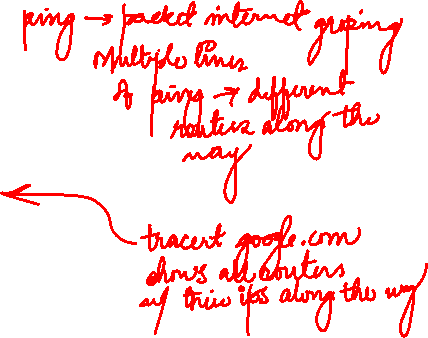 ping → packed internet groping
Multiple lines
of ping → different
routers along the
way
tracert google.com
shows all routers
w/ their ips along the way